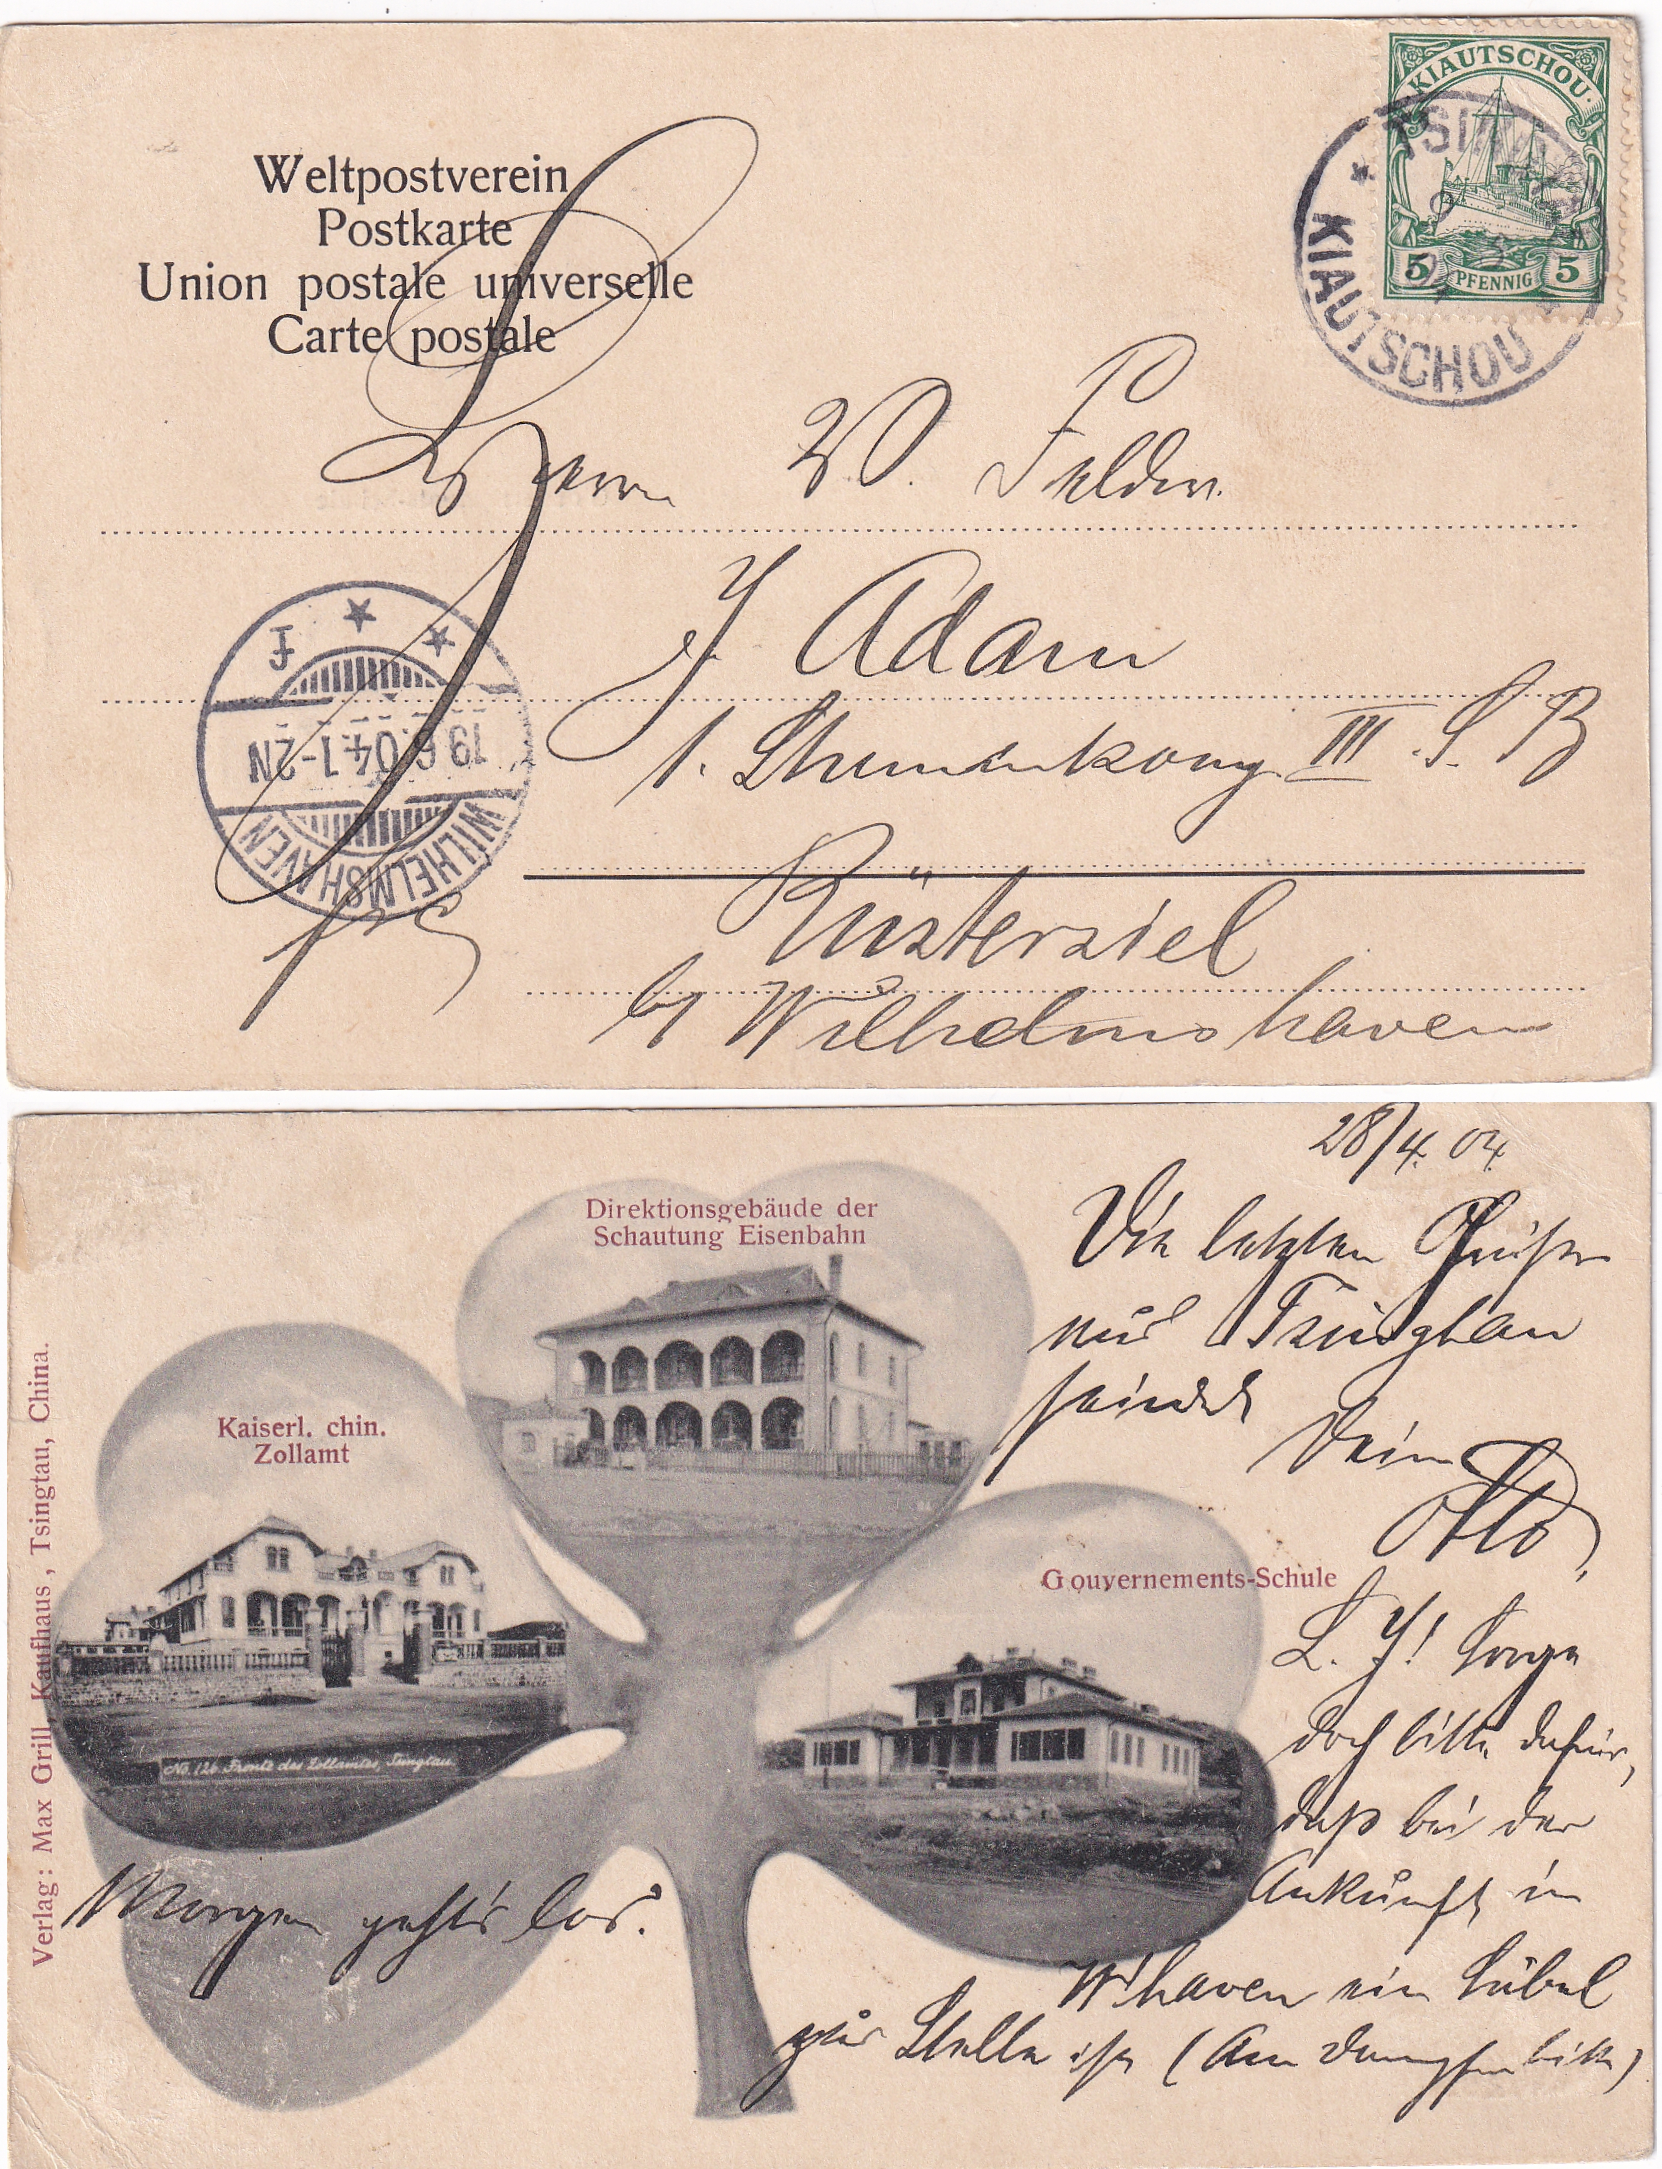 Weltpostverein
Postkarte
Union postale universelle
Carte postale
KIAUTSCHOU
5 PFENNIG 5
KIAUTSCHOU
Herrn W. Felder.
Adam
III. S. B
Rüstersiel
b/ Wilhelmshaven
F
19.6.04.1-2N
WILHELMSHAVEN
28/4. 04.
Die letzten Grüße
aus Tsingtau
sendet
Dein
Otto.
L. J! Sorge
doch bitte dafür,
daß bei der
Ankunft in
W'haven ein Kübel
zur Stelle ist (Am Dampfer bitte)
Morgen geht's los.
Direktionsgebäude der
Schautung Eisenbahn
Kaiserl. chin.
Zollamt
Gouvernements-Schule
No. 126 Front des Zollamtes, Tsingtau.
Verlag: Max Grill Kaufhaus, Tsingtau, China.